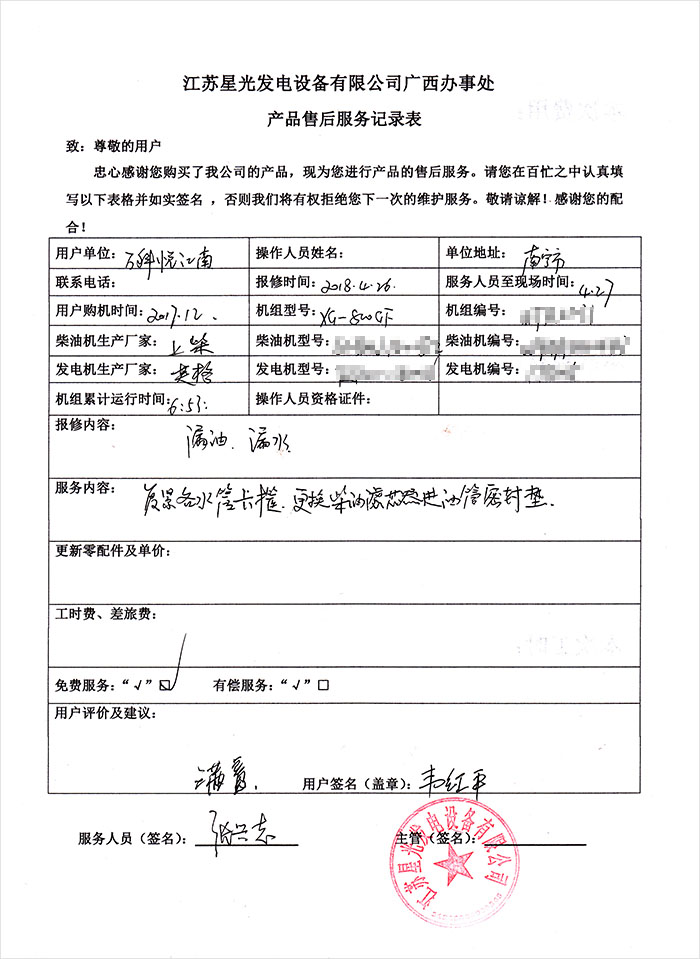 江苏星光发电设备有限公司广西办事处
产品售后服务记录表
致：尊敬的用户
忠心感谢您购买了我公司的产品，现为您进行产品的售后服务。请您在百忙之中认真填
写以下表格并如实签名 ，否则我们将有权拒绝您下一次的维护服务。敬请谅解！感谢您的配
合！
用户单位：万科悦江南 操作人员姓名： 单位地址：南宁市
联系电话： 报修时间：2018.4.26 服务人员至现场时间：4.27
用户购机时间：2017.12. 机组型号：XG-800GF 机组编号：
柴油机生产厂家：上柴 柴油机型号： 柴油机编号：
发电机生产厂家： 发电机型号： 发电机编号：
机组累计运行时间：6:53. 操作人员资格证件：
报修内容：
漏油、漏水
服务内容：
各水管卡箍、更换柴油滤芯 进油管密封垫.
更新零配件及单价：
工时费、差旅费：
免费服务：“√”☑ 有偿服务：“√”□
用户评价及建议：
满意. 用户签名（盖章）：韦红平
服务人员（签名）：张兴志 主管（签名）：
江苏星光发电设备有限公司